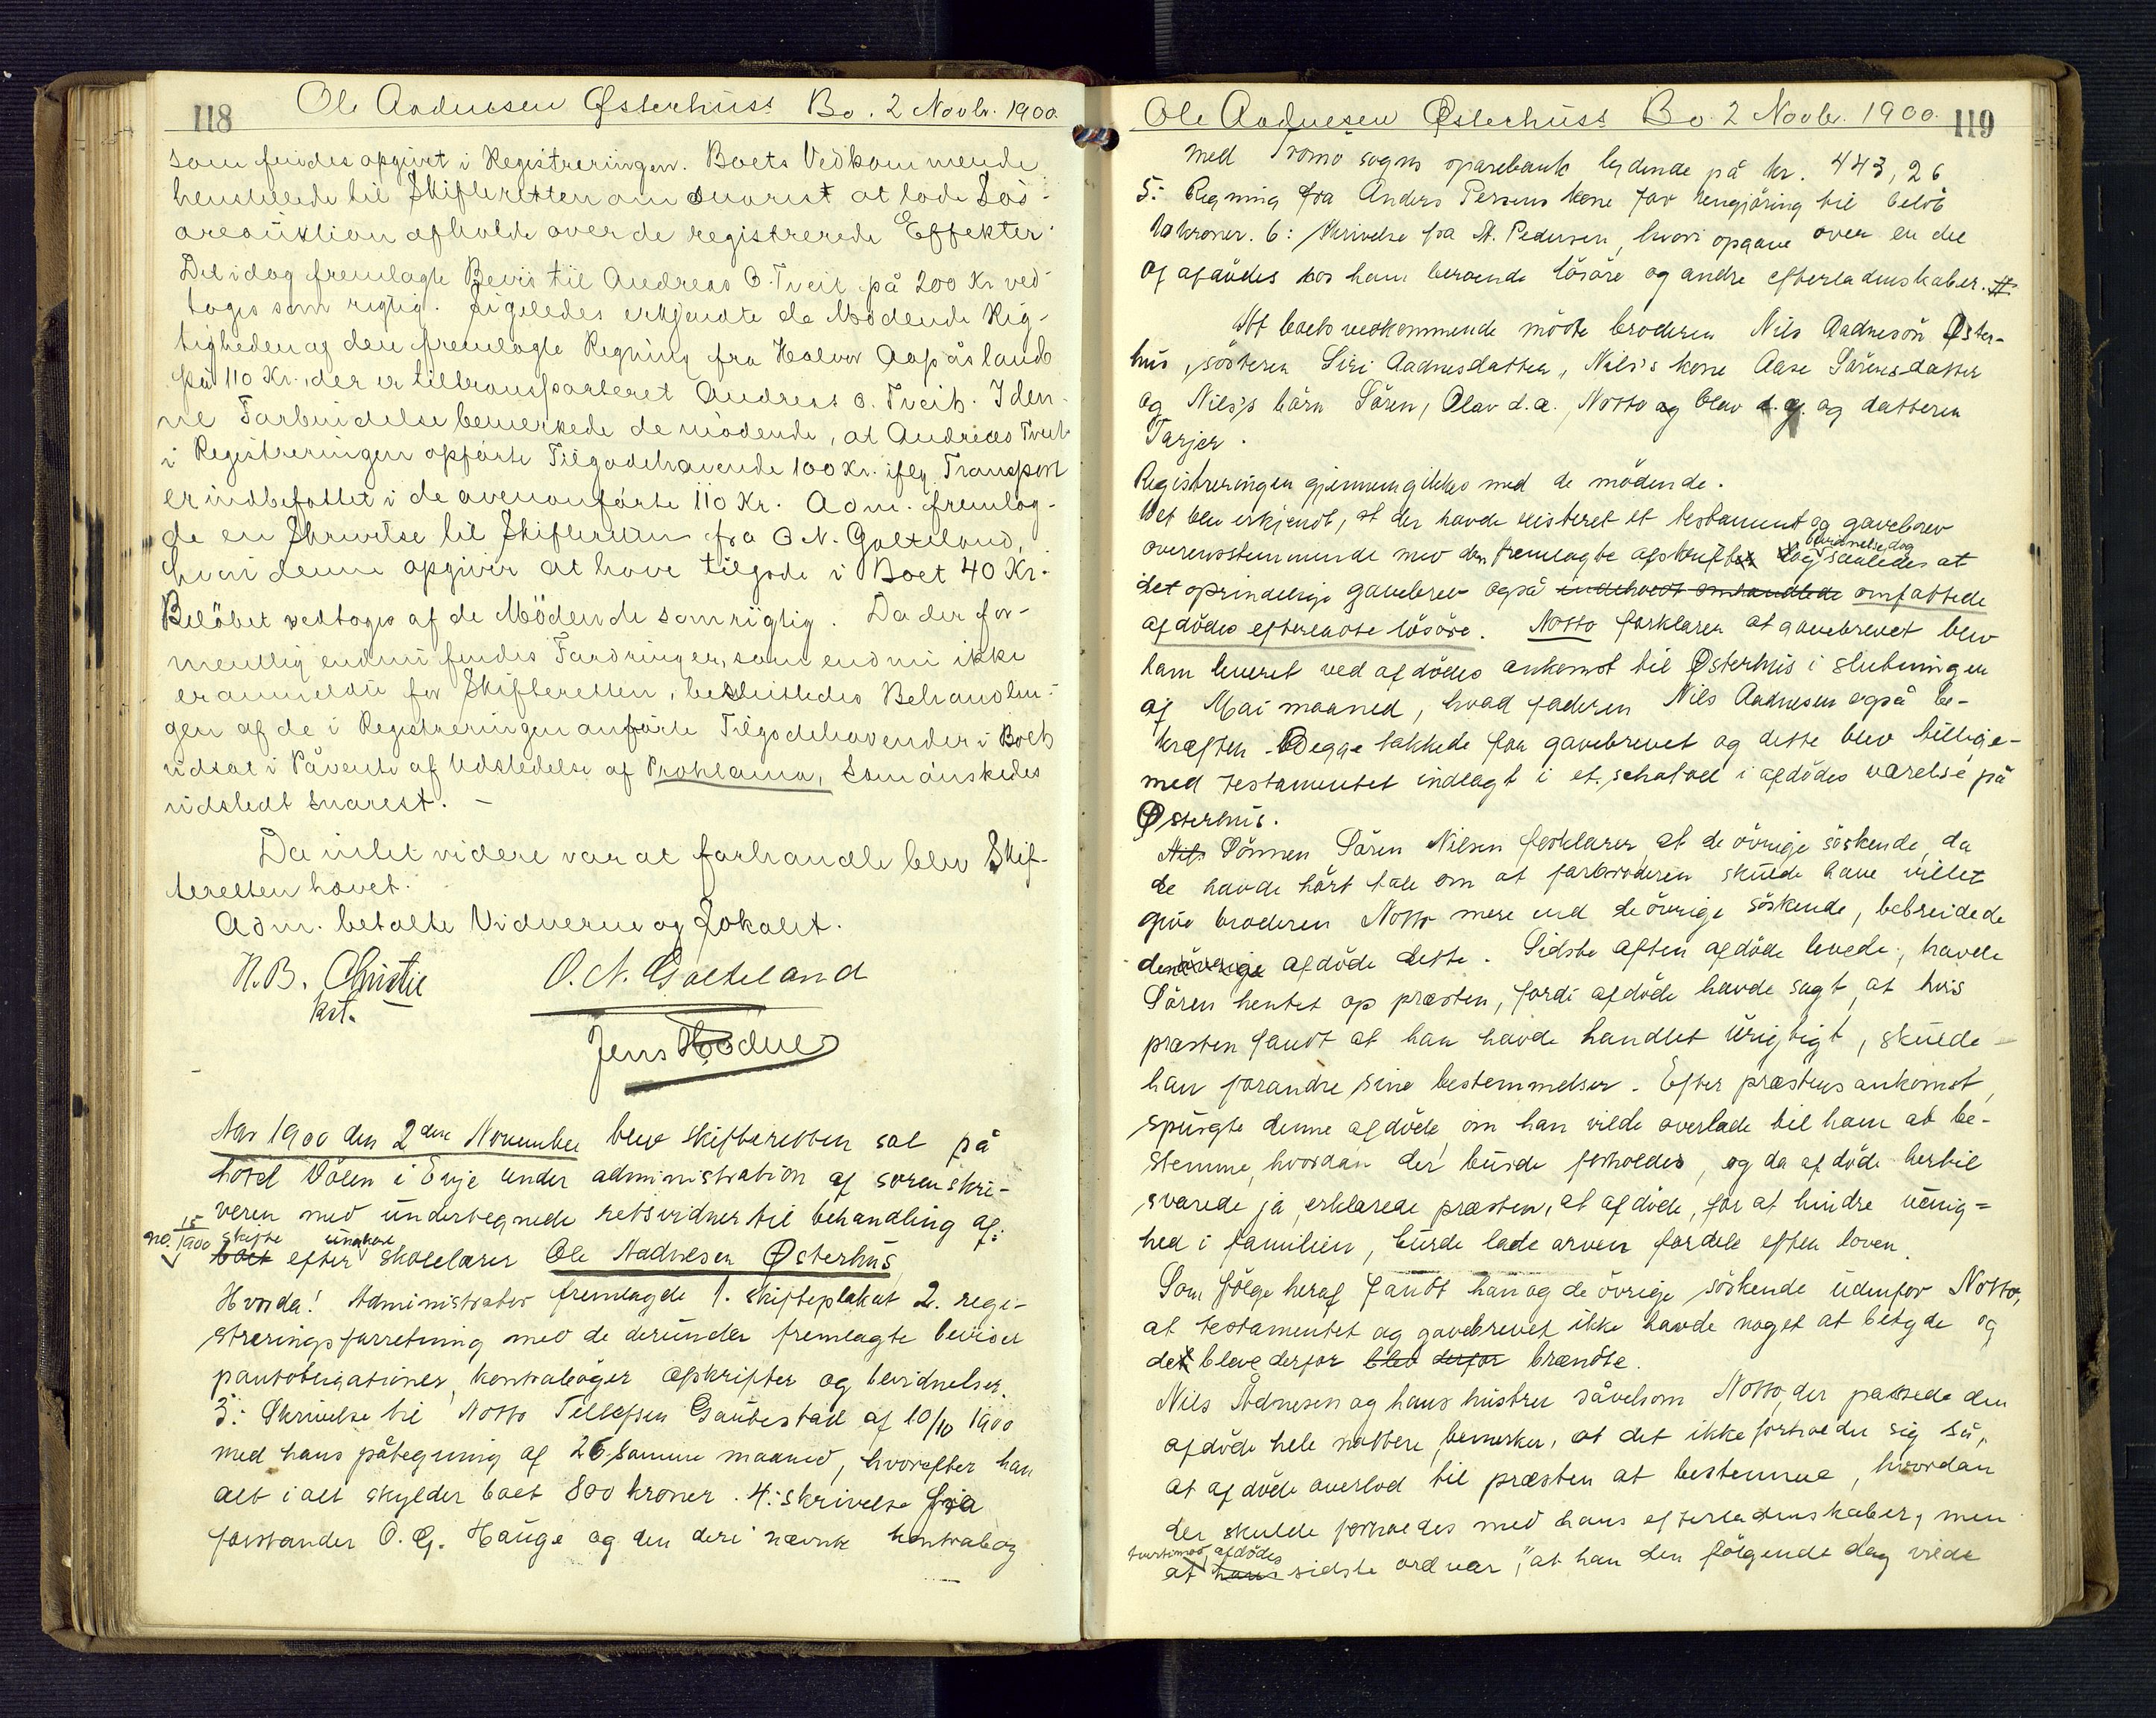 118 Ole Aadnesen Østerhus's Bo. 2 Novbr. 1900.
som findes opgivet i Registreringen. Boets Vedkommende
henstillede til Skifteretten om snarest at lade Løs-
øreauktion afholde over de registrerede Effekter.
Det idag fremlagte Bevis til Andreas O. Tveit på 200 Kr ved-
toges som rigtig. Ligeledes erkjendte de Mødende Rig-
tigheden af den fremlagte Regning fra Halvor Aapåsland
på 110 Kr. der er tiltransporteret Andreas O. Tveit. I den-
ne Forbindelse bemerkede de mødende, at Andreas Tveit
i Registreringen opførte Tilgodehavende 100 Kr. ifølg Transport
er indbefattet i de ovenanførte 110 Kr. Adm. fremlag-
de en Skrivelse til Skifteretten fra O N. Galteland,
hvori denne opgiver at have tilgode i Boet 40 Kr.
Beløbet vedtoges af de Mødende som rigtig. Da der for-
mentlig endnu findes Fordringer, som endnu ikke
er anmeldte for Skifteretten, besluttedes Behandlin-
gen af de i Registreringen anførte Tilgodehavender i Boet
udsat i Påvente af Udstedelse af Proklama, som ønskedes
udstedt snarest. –
Da intet videre var at forhandle blev Skif-
teretten hævet.
Adm. betalte Vidnerne og Lokalet.
H. B. Christie O. N. Galteland
kst.
Jens Hodne
Aar 1900 den 2den November blev skifteretten sat på
hotel Dølen i Evje under administration af sorenskri-
veren med undertegnede retsvidner til behandling af:
no. 15/1900 skifte ungkar
boet efter skolelærer Ole Aadnesen Østerhus
Hvorda! Administrator fremlagde 1. skifteplakat 2. regi-
streringsforretning med de derunder fremlagte beviser
pantobligationer, kontrabøger afskrifter og bevidnelser.
3: Skrivelse til Notto Tellefsen Gautestad af 10/10 1900
med hans påtegning af 26 samme maaned, hvorefter han
alt i alt skylder boet 800 kroner. 4: skrivelse fra
forstander O. G. Hauge og den deri nævnte kontrabog
Ole Aadnesen Østerhus's Bo. 2 Novbr. 1900. 119
med Tromø sogns sparebank lydende på kr. 443,26
5: Regning fra Anders Persens kone for rengjøring til beløb
10 kroner. 6: Skrivelse fra N. Pedersen, hvori opgave over en del
af afdødes hos ham beroende løsøre og andre efterladenskaber.
Af boets vedkommende mødte broderen Nils Aadnesøn Øster-
hus, søsteren Siri Aadnesdatter, Nils's kone Aase Sørensdatter
og Nils's børn Søren, Olav d.æ., Notto og Olav d.y. og datteren
Tarjer.
Registreringen gjennemgikkes med de mødende.
Det blev erkjendt, at der havde existeret et testament og gavebrev
bevidnelse dog
overensstemmende med den fremlagte afskrift og saaledes at
det oprindelige gavebrev også indeholdt omhandlede omfattede
afdødes efterladte løsøre. Notto forklarer at gavebrevet blev
ham leveret ved afdødes ankomst til Østerhus i slutningen
af Mai maaned, hvad faderen Nils Aadnesen også be-
kræfter. Begge takkede for gavebrevet og dette blev tillige-
med testamentet indlagt i et schatol i afdødes værelse på
Østerhus.
Nils Sønnen Søren Nilsen forklarer, at de øvrige søskende, da
de havde hørt tale om at farbroderen skulde have villet
give broderen Notto mere end de øvrige søskende, bebreidede
den øvrige afdøde dette. Sidste aften afdøde levede, havde
Søren hentet op præsten, fordi afdøde havde sagt, at hvis
præsten fandt at han havde handlet urigtigt, skulde
han forandre sine bestemmelser. Efter præstens ankomst,
spurgte denne afdøde, om han vilde overlade til ham at be-
stemme, hvordan der burde forholdes, og da afdøde hertil
svarede ja, erklærede præsten, at afdøde, for at hindre uenig-
hed i familien, burde lade arven fordele efter loven.
Som følge heraf fandt han og de øvrige søskende udenfor Notto,
at testamentet og gavebrevet ikke havde noget at betyde og
de bleve derfor blev derfor brændte.
Nils Ådnesen og hans hustru såvelsom Notto, der passede den
afdøde hele natten, bemerker, at det ikke forholder sig så,
at afdøde overlod til præsten at bestemme, hvordan
der skulde forholdes med hans efterladenskaber, men
tvertimod afdødes
at hans sidste ord var, "at han den følgende dag vilde